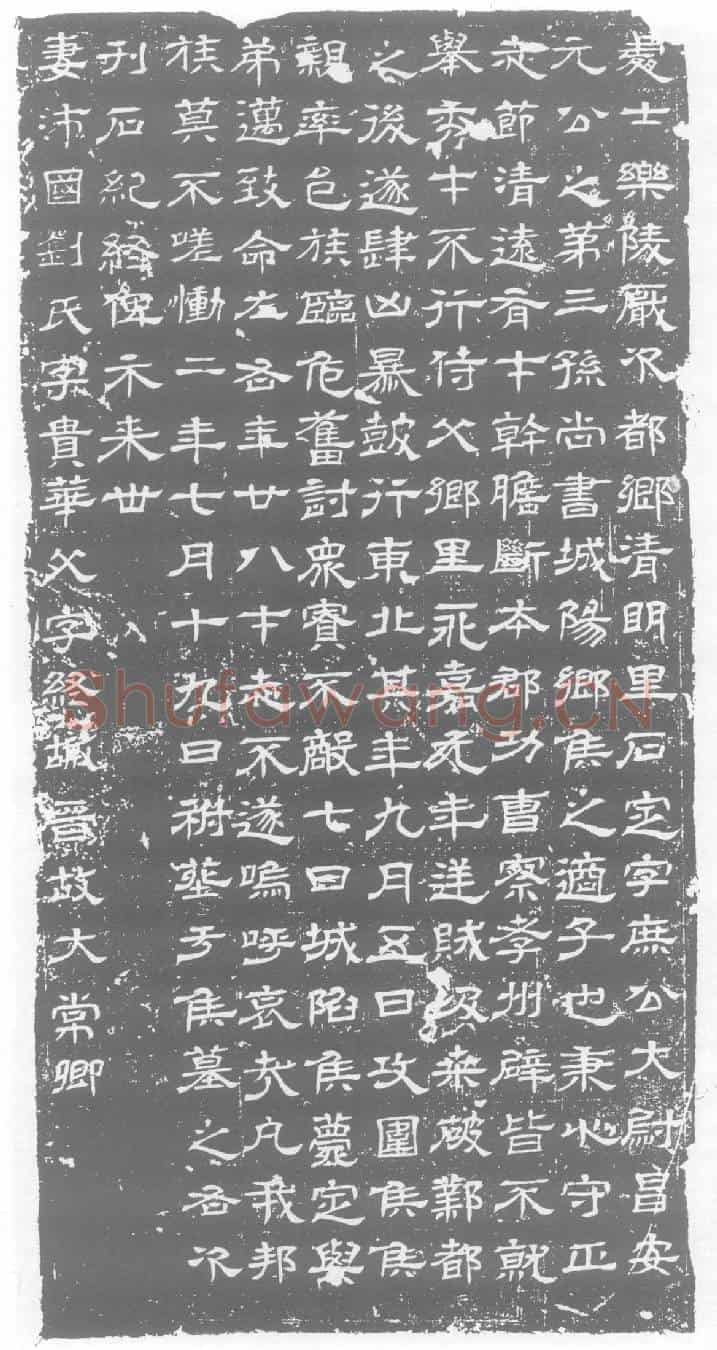 處士樂陵厭次都鄉清明里石定字庶公大尉昌安
元公之第三孫尚書城陽鄉侯之適子也秉心守正
志節清遠有才幹膽斷本郡功曹察孝州辟皆不就
舉秀才不行侍父鄉里永嘉元年逆賊汲桑破鄴都
之後遂肆凶暴鼓行東北其年九月五日攻圍侯侯
親率邑族臨危奮討衆寡不敵七日城陷侯薨定與
弟邁致命左右年廿八才志不遂嗚呼哀哉凡我邦
族莫不嗟慟二年七月十九日祔塟于侯墓之右次
刊石紀終俾示来世
妻沛國劉氏字貴華父字終嘏晉故大常卿
Shufawang.CN